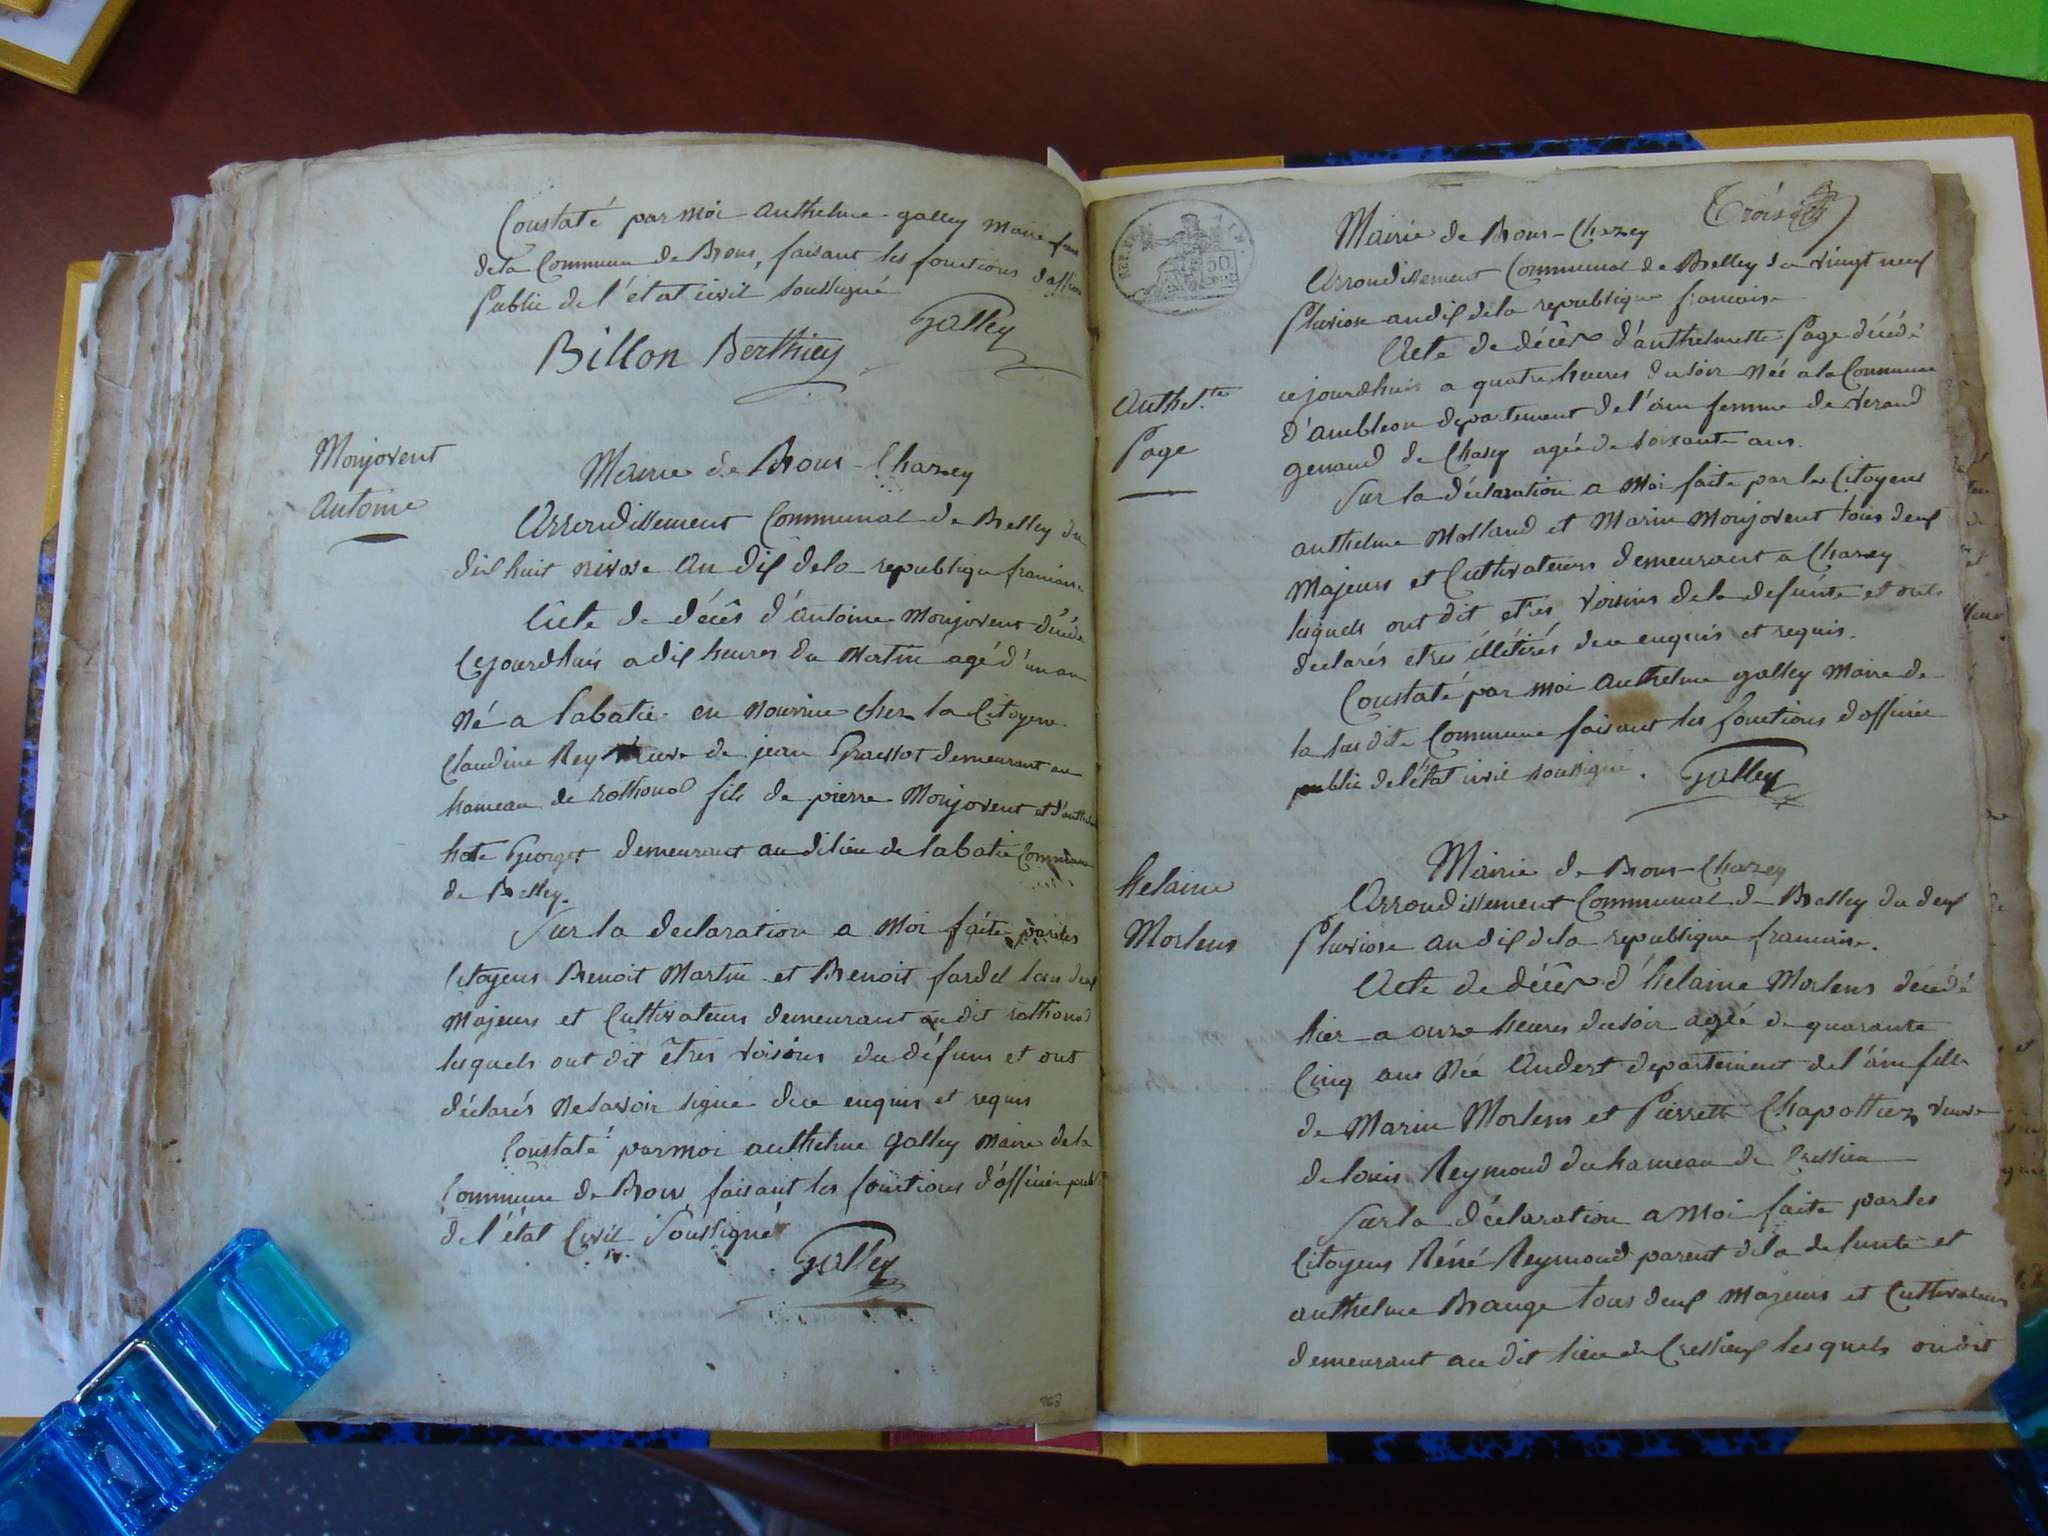 Constaté par moi anthelme galley Maire
de la Commune de Brons, faisant les fonctions d'officier
public de l'état civil soussigné
galley
Billon Berthier
Monjovent
Antoine
Mairie de Brons-Chazey
Arrondissement Communal de Belley du
dix huit nivose an dix de la republique francaise
Acte de décès d'Antoine Monjovent décédé
cejourdhuis a dix heures du Matin agé d'un an
Né a labatie en nourrice chez la Citoyene
Claudine Rey veuve de jean Grassot demeurant au
hameau de rothonod fils de pierre Monjovent et d'anthel
Georget demeurant au dit lieu de labatie Commune
de Belley.
Sur la declaration a Moi faite par les
Citoyens Benoit Martin et Benoit fardel tous deux
Majeurs et Cultivateurs demeurant au dit rothonod
lesquels ont dit êtres voisins du défunt et ont
déclarés Ne savoir signé de ce enquis et requis
Constaté par moi anthelme galley Maire de la
Commune de Brons faisant les fonctions d'officier publ
de l'état Civil Soussigné
galley
Trois
Mairie de Brons-Chazey
Arrondissement Communal de Belley du vingt neuf
Pluviose an dix de la republique francaise
Acte de décès d'anthelmette Page décédé
cejourdhuis a quatre heures du soir Née a la Commune
d'ambleon departement de l'ain femme de
genaud de Chasey agée de soixante ans.
Anthel.te
Page
Sur la déclaration a Moi faite par les Citoyens
anthelme Molland et Marin Monjovent tous deux
Majeurs et Cultivateurs demeurant a Chazey
lesquels ont dit etres voisins de la defunte et ont
declarés etres illétirés de ce enquis et requis.
Constaté par moi anthelme galley Maire de
la susdite Commune faisant les fonctions d'officier
public de l'état civil soussigné. galley
helaine
Morlens
Mairie de Brons-Chazey
Arrondissement Communal de Belley du deux
Pluviose an dix de la republique francaise.
Acte de décès d'helaine Morlens décédé
hier a onze heures du soir agée de quarante
Cinq ans Née Andert departement de l'ain fille
de Marin Morlens et Pierrette Chapottier veuve
de louis Reymond du hameau de Cressieu
Sur la déclaration a Moi faite par les
Citoyens Réné Reymond parent de la defunte et
anthelme Brange tous deux Majeurs et Cultivateurs
demeurant au dit lieu de Cressieux lesquels ont dit